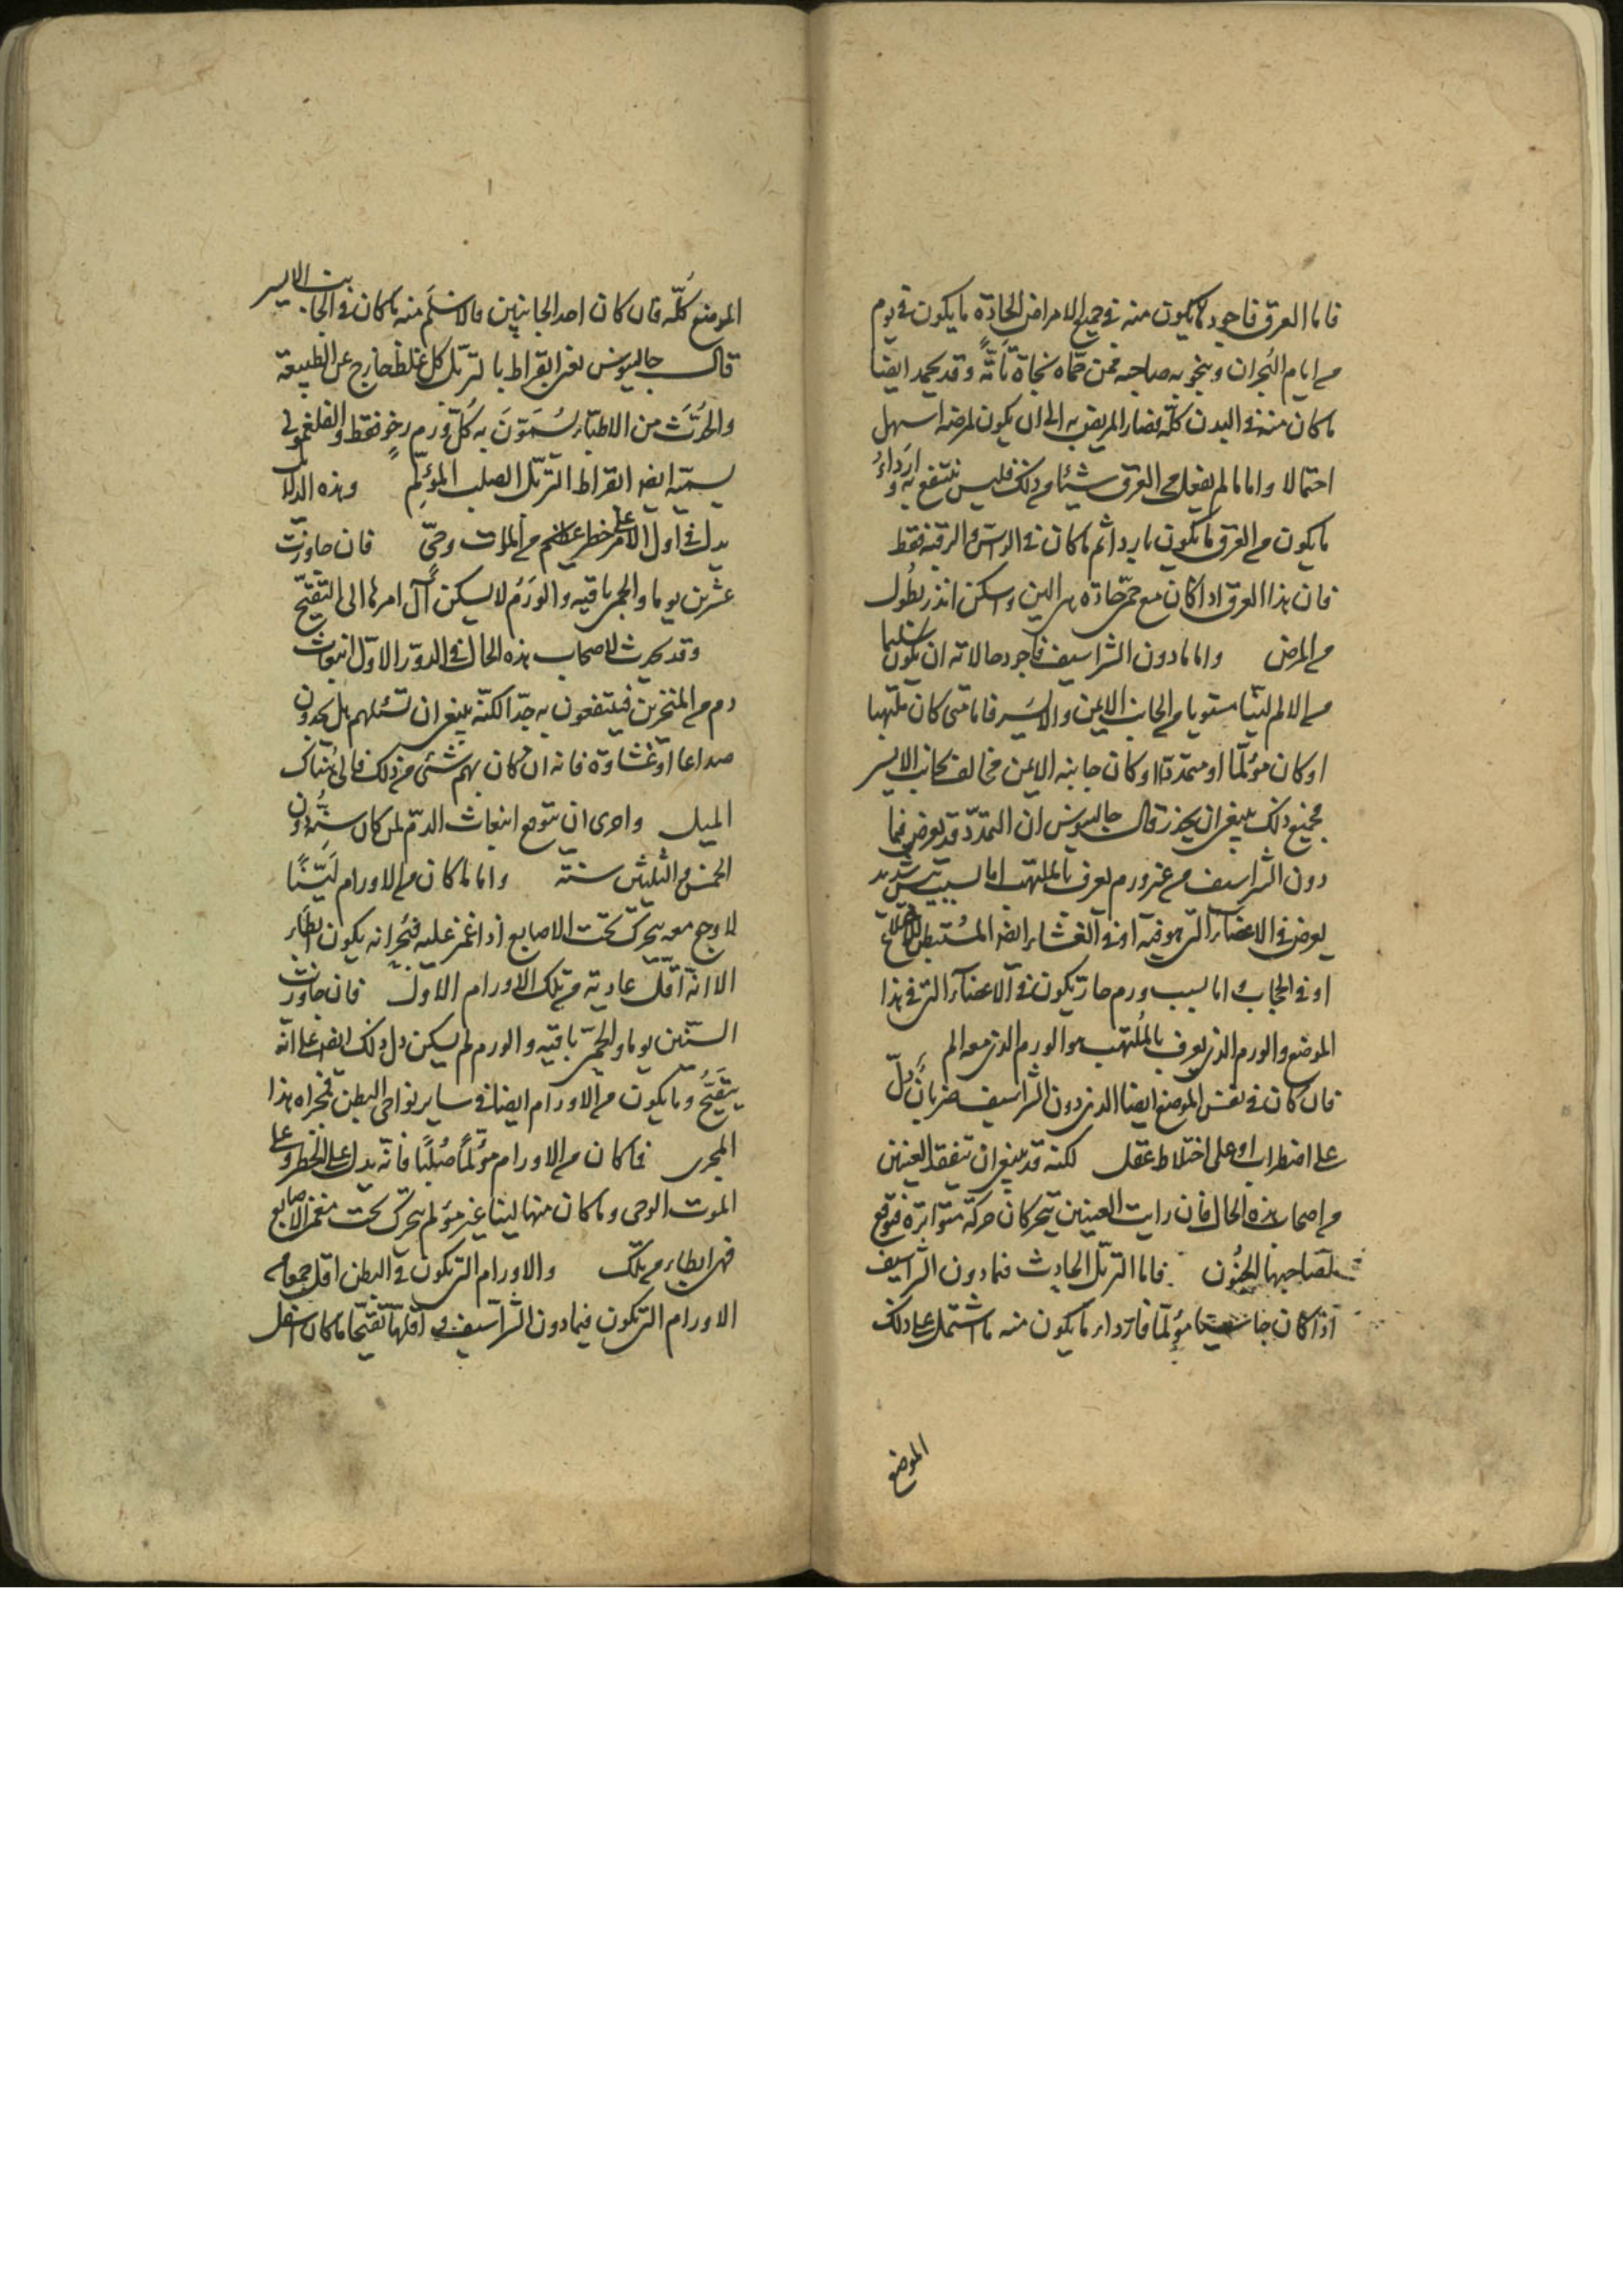 فاما العرق فاجود ما يكون منه فى جميع الامراض الحادّه ما يكون فى يوم
من ايام البُحران وينجو به صاحبه من حمّاه نجاة تامّةً وقد يحمد ايضا
ما كان منه فى البدن كلّه فصار المريض به الى ان يكون لمرضه اسهل
احتمالا واما ما لم يفعل من العرق شيئا من ذلك فليس ينتفع به وارداءُ
ما يكون من العرق ما يكون باردا ثم ما كان فى الراس والرقبه فقط
فان هذا العرق اذا كان مع حمّى حادّه هى الين واسكن انذر بطُول
من المرض واما ما دون الشراسيف فاجود حالاته ان يكون سليما
من الالم ليّنا مستويا من الجانب الايمن والايسَر فاما متى كان ملتهبا
او كان مؤلمّا او متمددّا او كان جانبه الايمن مخالف لجانبه الايسر
فجميع ذلك ينبغى ان يحذر قال جالينوس ان التمدّد قد يعرض فيما
دون الشراسيف من غير ورم يعرف بالملتهب اما لسبب يبس شديد
يعرض فى الاعضآء التى هو فيه او فى الغشاء ايضا المُستبطن للاضلاع
او فى الحجاب واما لسبب ورم حارّ يكون فى الاعضآء التى فى هذا
الموضع والورم الذى يعرف بالمُلتهب هو الورم الذى معه الم
فان كان فى نفس الموضع ايضا الذى دون الشراسيف ضربانٌ دلّ
على اضطراب او على اختلاط عقل لكنه قد ينبغى ان تتفقد العينين
من اصحاب هذه الحال فان رايت العينين تتحركان حركة متواترة فتوقع
لصاحبها الجُنون فاما التربّل الحادث فيما دون الشراسيف
اذا كان جاسيا مؤلمّا فاردآء ما يكون منه ما اشتمل على ذلك
الموضع
الموضع كُلّه فان كان احد الجانبين فالاسْلَم منه ما كان فى الجانب الايسر
قال جالينوس يعنى ابقراط بالتربّل كل غلظ خارج عن الطبيعة
والحُدَث من الاطبّاء يُسَمّونَ به كُلّ ورم رخوٍ فقط والفلغمونى
يسمّيه ايضا ابقراط التربّل الصلب المؤلِم وهذه الدلائل
يدل فى اول الامر على خطر عظيم من الموت وحىٍّ فان جاوزت
عشرين يوما والحمى باقيه والوَرَمُ لا يسكن آل امرها الى التقيّح
وقد يحدث لاصحاب هذه الحال فى الدوّر الاوّل انبعاث
دم من المنخرين فينتفعون به جدّا لكنّه ينبغى ان تسئلهم هل يجدون
صداعا او غشاوة فانه ان كان بهم شئى من ذلك فالى هُناك
الميل واحرى ان يتوقع انبعاث الدّم لمن كان سنّه دون
الخمس والثلثين سنة واما ما كان من الاورام لَيّنًا
لا وجع معه يتحرك تحت الاصابع اذا غمز عليه فبُحرانه يكون ابطاء
الا انه اقلّ عادية من تلك الاورام الاول فان جاوزت
الستين يوما والحمّى باقيه والورم لم يسكن دل ذلك ايضا على انّه
يتقيّحُ وما يكون من الاورام ايضا فى ساير نواحى البطن فمجراه هذا
المجرى فما كان من الاورام مؤلمًا صُلبًا فانّه يدل على الخطر وعلى
الموت الوحى وما كان منها لينا غير مؤلم يتحرك تحت مغمز الاصابع
فهى ابطاء من تلك والاورام التى تكون فى البطن اقل جمعا من
الاورام التى تكون فيما دون الشراسيف واقلّها تقيّحا ما كان اسفل